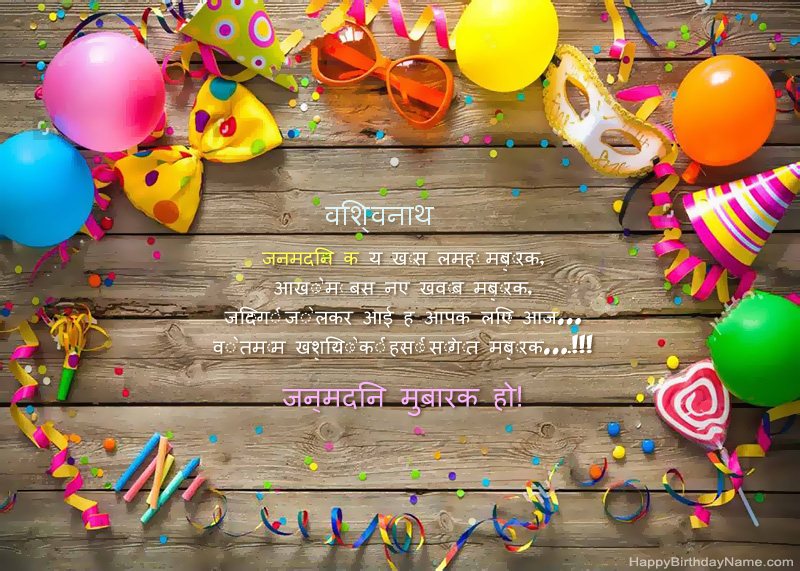 विश्वनाथ
जनमदिन क य खास लमह मुबारक,
आखों म बस नए खवाब मुबारक,
जिदगी जो लकर आई ह आपक लिए आज...
वो तमाम खुशियों की हसीं सगात मुबारक...!!!
जन्मदिन मुबारक हो!
HappyBirthdayName.com